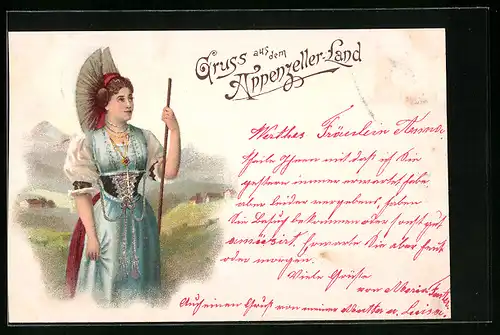 Gruss aus dem
Appenzeller-Land
Werthes Fräulein Anna.
Theile Ihnen mit daß ich Sie
gestern immer erwartet habe
aber leider vergebens, haben
Sie Besuch bekommen oder sonst gut
amüsirt. Erwarte Sie aber heut
oder morgen.
Viele Grüsse
von Maria
Auch einen Gruß von meiner Mutter u. Luise.